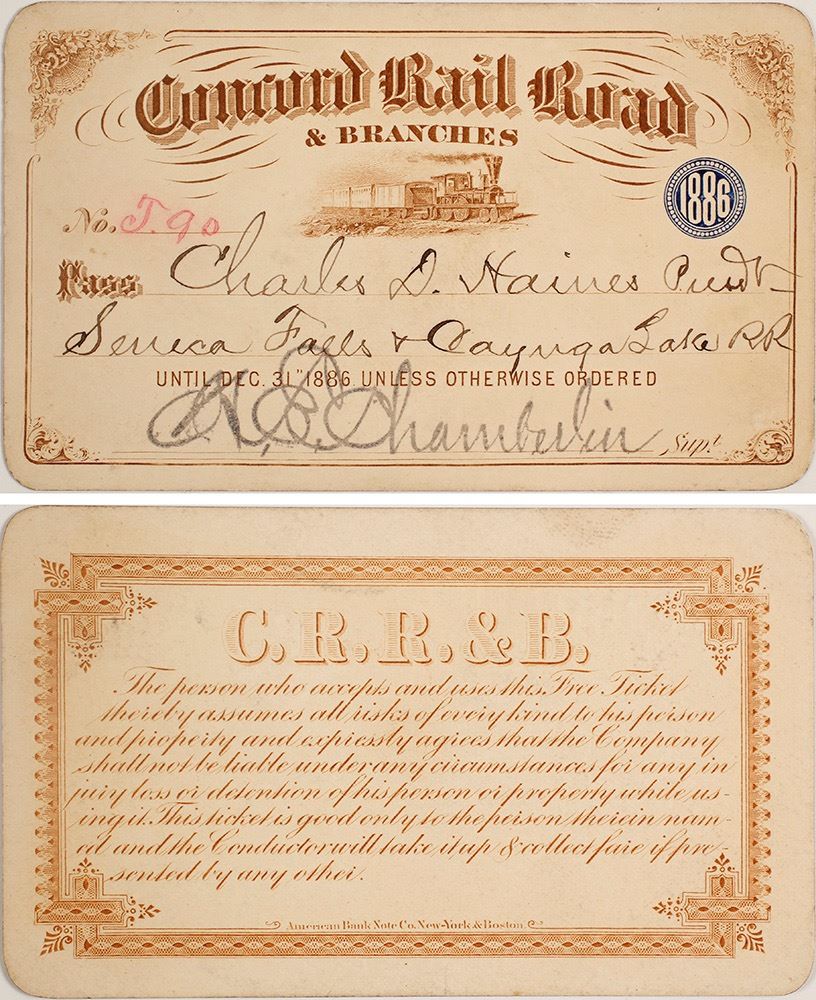 Concord Rail Road
& BRANCHES
1886
No. J.90
Pass Charles D. Haines Presdt
Seneca Falls & Cayuga Lake RR
UNTIL DEC. 31" 1886 UNLESS OTHERWISE ORDERED
H. E. Chamberlin Supt.
C. R. R. & B.
The person who accepts and uses this Free Ticket
thereby assumes all risks of every kind to his person
and property and expressly agrees that the Company
shall not be liable under any circumstances for any in
jury loss or detention of his person or property while us-
ing it. This ticket is good only to the person therein nam-
ed and the Conductor will take it up & collect fare if pre-
sented by any other.
American Bank Note Co. New-York & Boston.